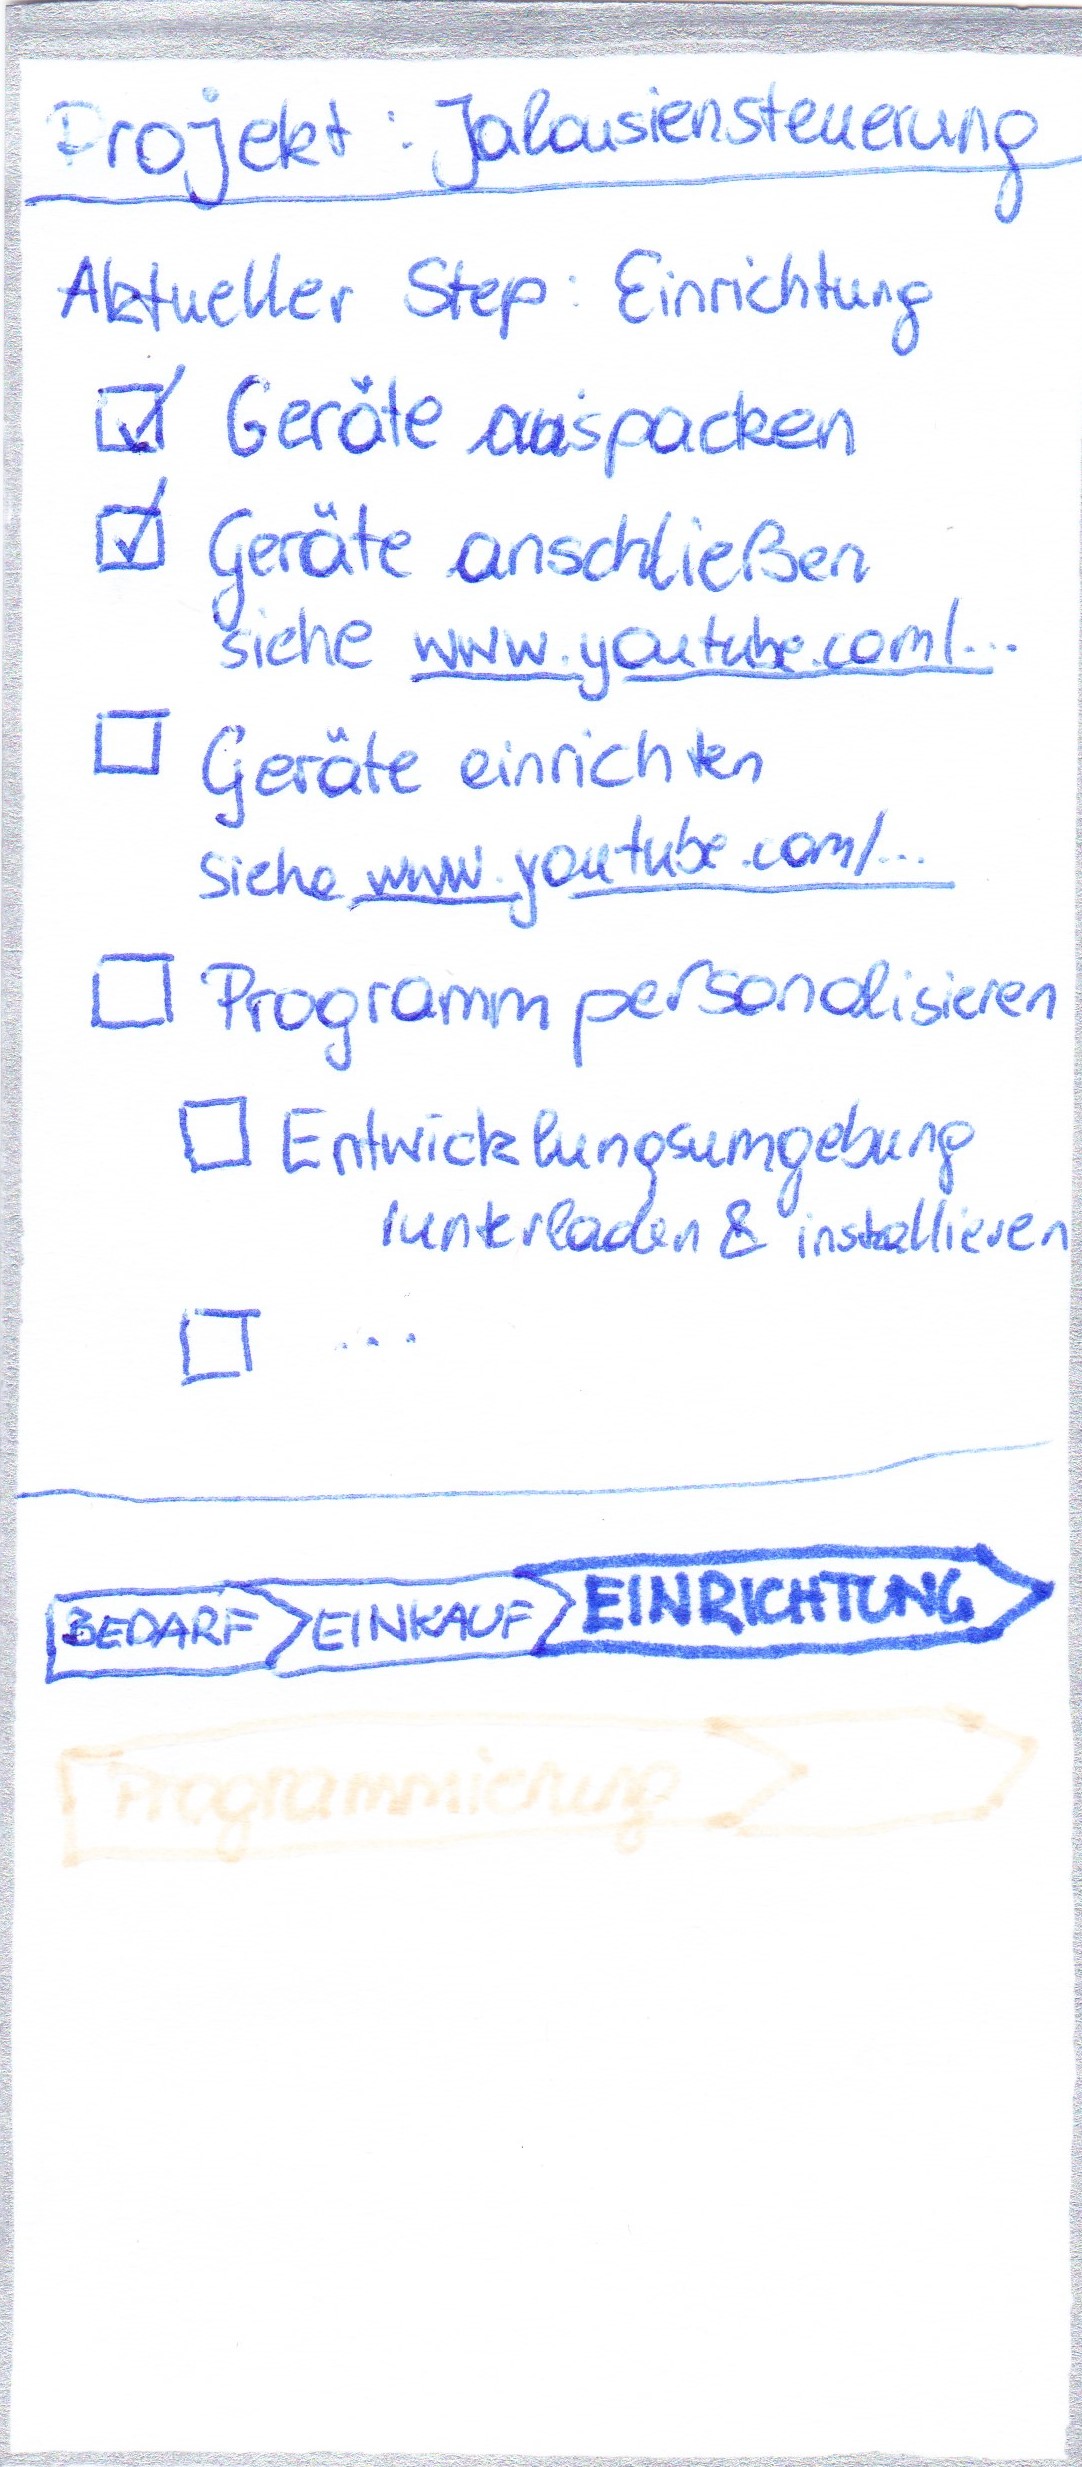 Projekt: Jalousiensteuerung
Aktueller Step: Einrichtung
Geräte auspacken
Geräte anschließen
siehe www.youtube.com/...
Geräte einrichten
siehe www.youtube.com/...
Programm personalisieren
Entwicklungsumgebung
runterladen & installieren
...
BEDARF EINKAUF EINRICHTUNG
Programmierung